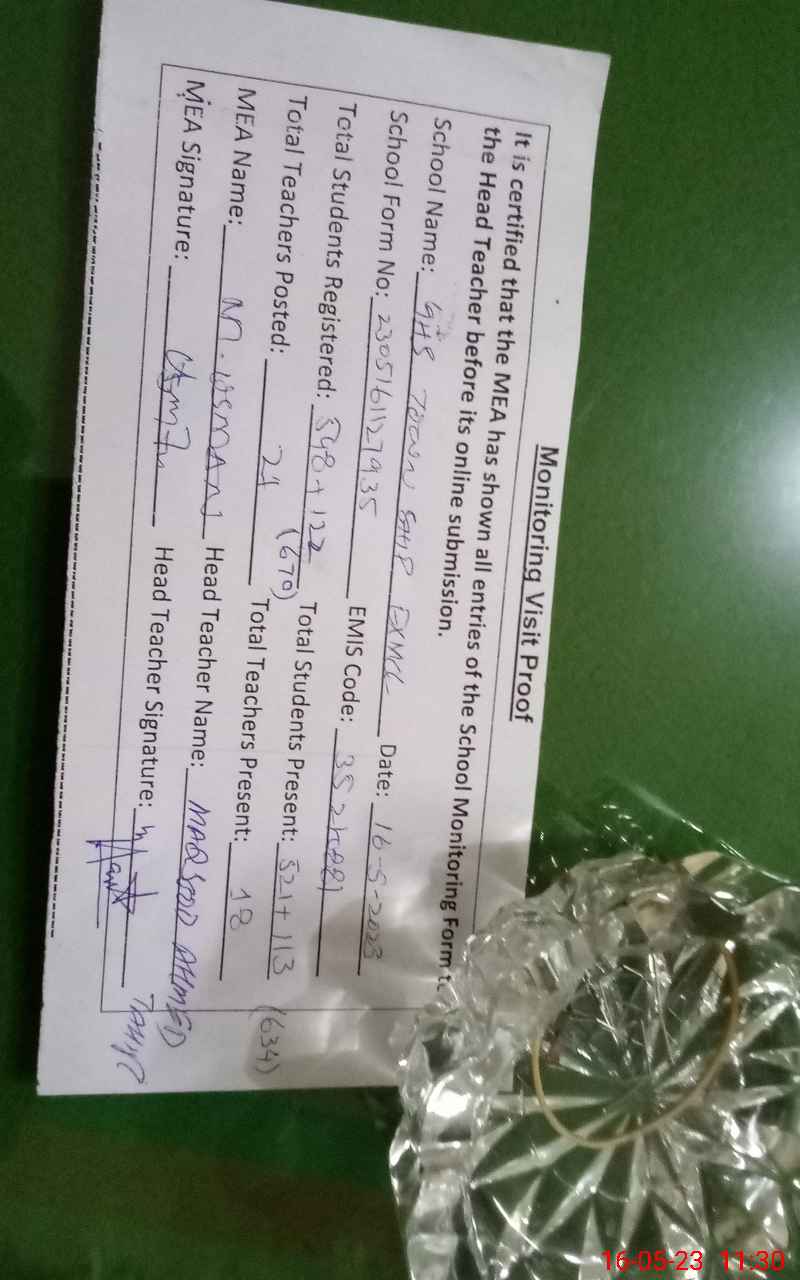 Monitoring Visit Proof
It is certified that the MEA has shown all entries of the School Monitoring Form to
the Head Teacher before its online submission.
School Name: GHS TOWN SHIP Date: 16-5-2023
School Form No: 2305161127935 EMIS Code:
Total Students Registered: 548+122 (670) Total Students Present: 521+113 (634)
Total Teachers Posted: 21 Total Teachers Present: 18
MEA Name: M. USMAN Head Teacher Name: MAQSOOD AHMED TAHIR
MEA Signature: Head Teacher Signature:
16-05-23 11:30